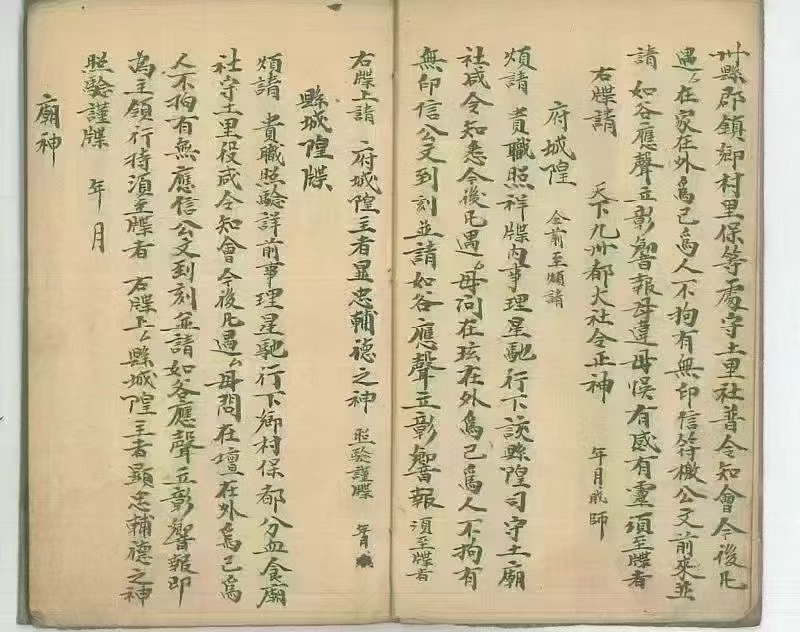 州縣郡鎮鄉村里保等處守土里社普令知會今後凡
遇〻在家在外為己為人不拘有無印信符檄公文前來並
請 如谷應聲立彰響報毋違毋悞有感有靈須至牒者
右牒請 天下九州都大社令正神 年月 師
府城隍 全前至煩請
煩請 貴職照祥牒內事理星馳行下該縣隍司守土廟
社咸令知悉今後凡遇〻毋问在玹在外為己為人不拘有
無印信公文到刻並請如谷應聲立彰響報 須至牒者
右牒上請 府城隍主者显忠輔德之神 照驗謹牒 年月
縣城隍牒
煩請 貴職照驗詳前事理星馳行下鄉村保都分血食廟
社守土里役咸令知會今後凡遇〻毋問在壇在外為己為
人不拘有無應信公文到刻並請如谷應聲立彰響報即
為主領行持須至牒者 右牒上〻縣城隍主者顯忠輔德之神
照驗謹牒 年 月
廟神